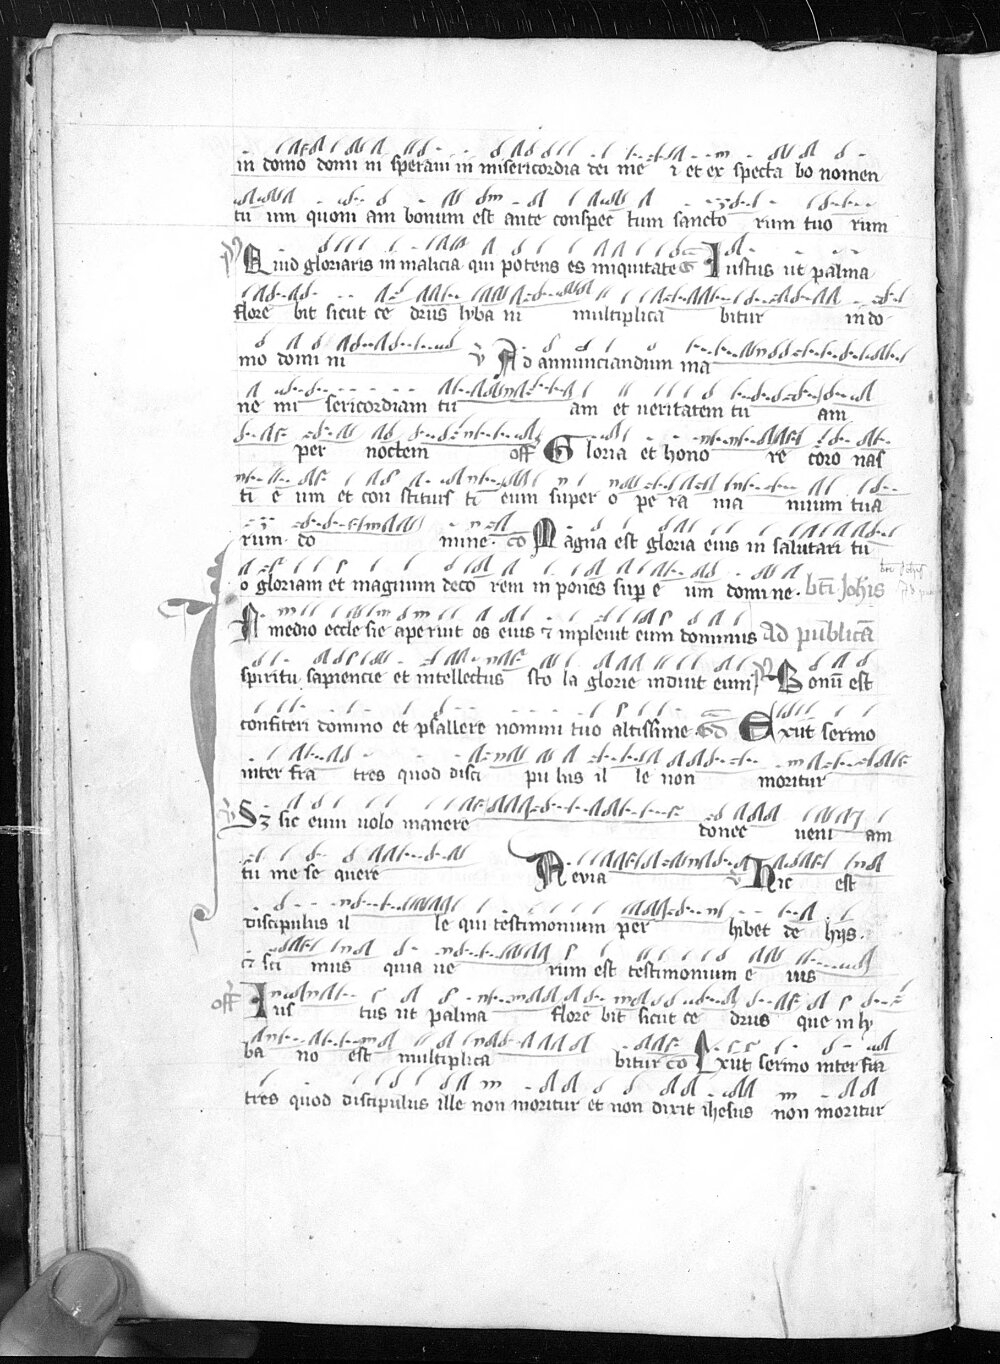 in domo domi ni speravi in misericordia dei me i et ex specta bo nomen
tu um quoni am bonum est ante conspec tum sancto rum tuo rum
Quid gloriaris in malicia qui potens es iniquitate G Iustus ut palma
flore bit sicut ce drus lyba ni multiplica bitur in do
mo domi ni v Ad annunciandum ma
ne mi sericordiam tu am et veritatem tu am
per noctem off Gloria et hono re coro nas
ti e um et con stituis ti eum super o pe ra ma nuum tua
rum do mine. co Magna est gloria eius in salutari tu
o gloriam et magnum deco rem in pones sup e um domine. bti Johis
In medio eccle sie aperuit os eius et inplevit eum dominus Ad publicã
spiritu sapiencie et intellectus sto la glorie induit eum ps Bonũ est
confiteri domino et psallere nomini tuo altissime. Gd Exiit sermo
inter fra tres quod disci pu lus il le non moritur
v Sz sic eum volo manere donec veni am
tu me se quere Aevia v Hic est
discipulus il le qui testimonium per hibet de hiis.
et sci mus quia ve rum est testimonium e ius
off Ius tus ut palma flore bit sicut ce drus que in ly
ba no est multiplica bitur co Exiit sermo inter fra
tres quod discipulus ille non moritur et non dixit ihesus non moritur